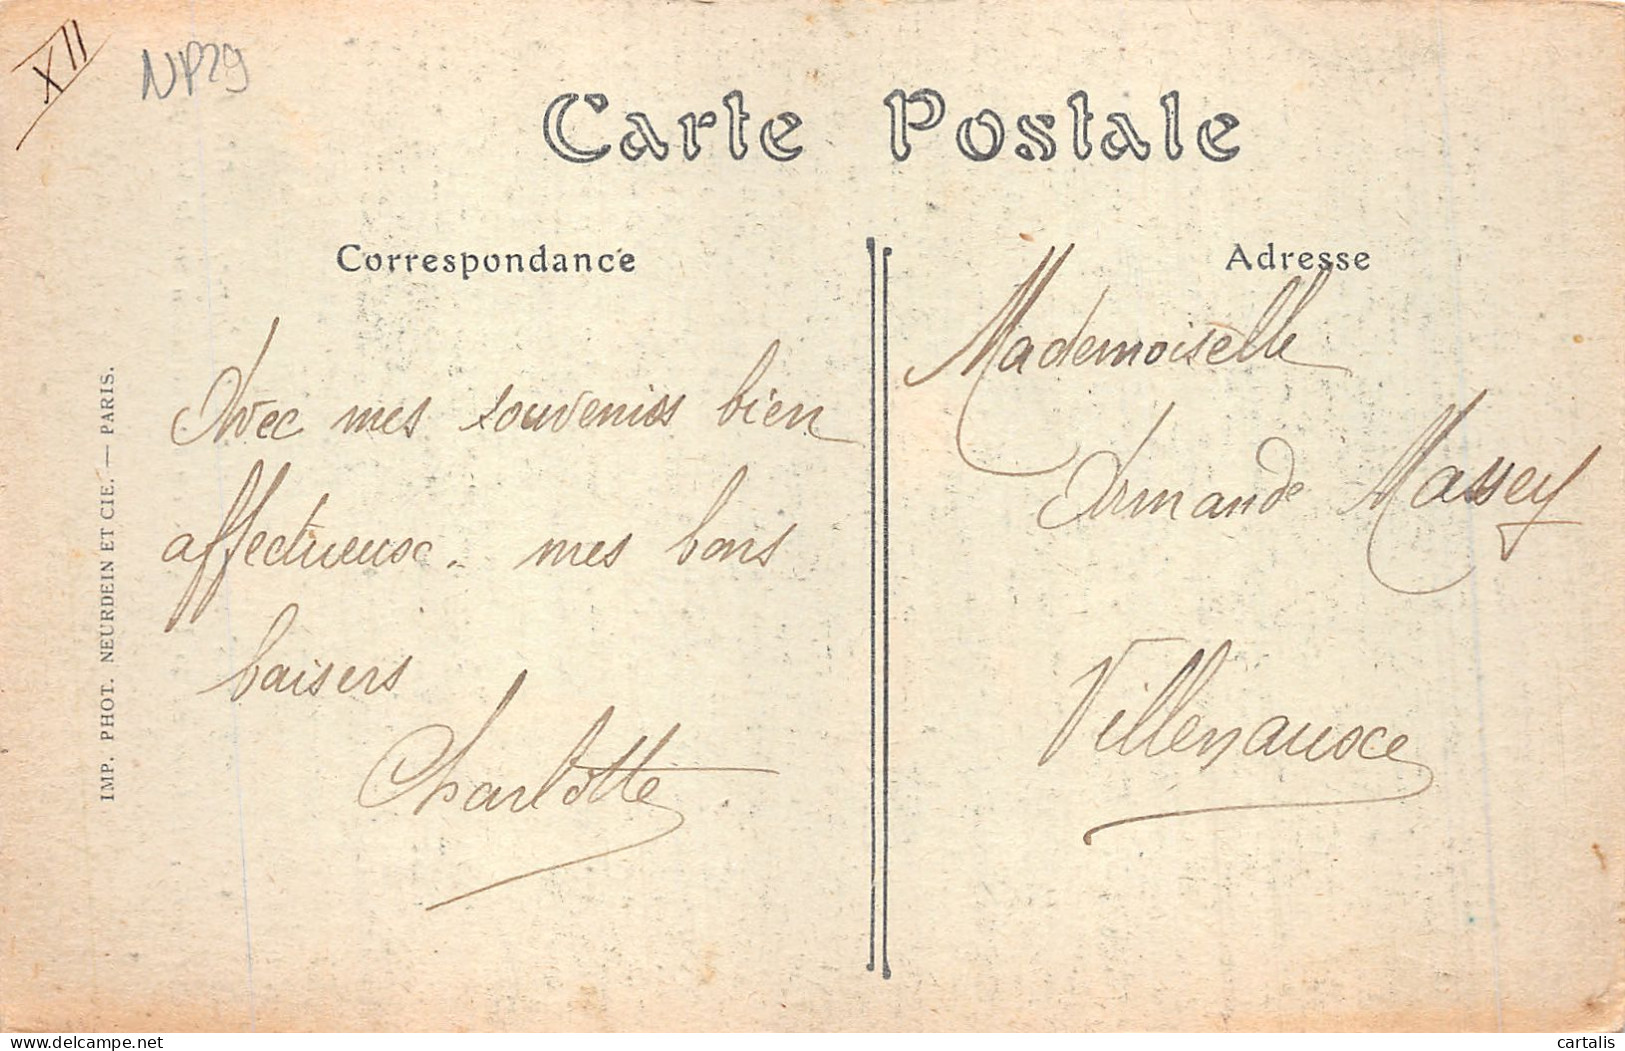 XII
NP29
Carte Postale
Correspondance
Adresse
Avec mes souvenirs bien
affectueuse. mes bons
baisers
Charlotte
Mademoiselle
Armande Massey
Villenauxe
IMP. PHOT. NEURDEIN ET CIE. — PARIS.
delcampe.net
cartalis